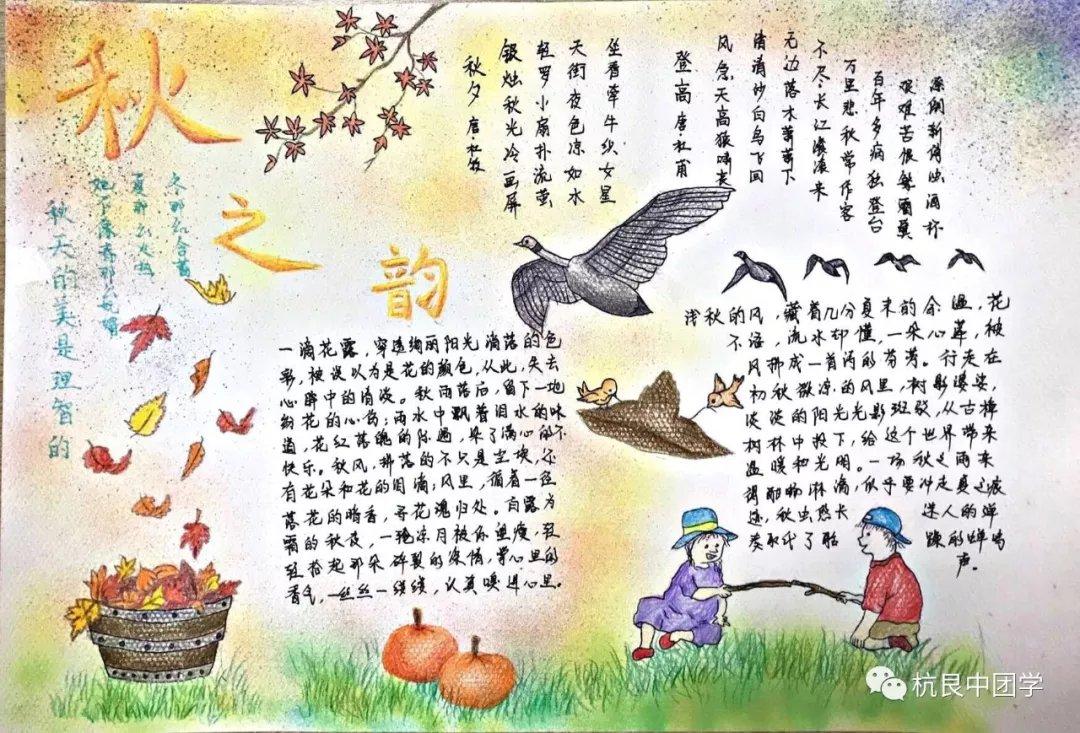 秋
之
韵
秋天的美是理智的
她不像春那么妩媚
夏那么火热
冬那么含蓄
秋夕 唐 杜牧
银烛秋光冷画屏
轻罗小扇扑流萤
天街夜色凉如水
坐看牵牛织女星
登高 唐 杜甫
风急天高猿啸哀
渚清沙白鸟飞回
无边落木萧萧下
不尽长江滚滚来
万里悲秋常作客
百年多病独登台
艰难苦恨繁霜鬓
潦倒新停浊酒杯
一滴花露，穿透绚丽阳光滴落的色
彩，被误以为是花的颜色，从此，失去
心脾中的清淡。秋雨落后，留下一地
纷花的心伤；雨水中飘着泪水的味
道，花红落魄的际遇，染了满心的不
快乐。秋风，掷落的不只是尘埃，还
有花朵和花的泪滴；风里，循着一径
落花的暗香，寻花魂归处。白露为
霜的秋夜，一艳凉月被你重度，轻
轻拾起那朵碎裂的深情，掌心里的
香气，一丝丝一缕缕，认真嗅进心里。
浅秋的风，藏着几分夏末的余温，花
不语，流水却懂，一朵心莲，被
风挪成一首诗的芬芳。行走在
初秋微凉的风里，树影婆娑，
淡淡的阳光光影斑驳，从古樟
树林中投下，给这个世界带来
温暖和光明。一场秋之雨来
得酣畅淋漓，似乎要冲走夏之痕
迹，秋虫悠长 迷人的蝉
类取代了聒 躁的蝉鸣
声。
杭艮中团学